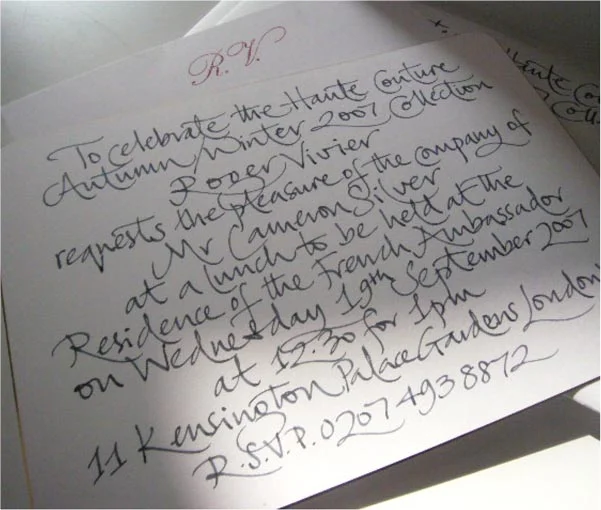 R.V.
To celebrate the Haute Couture
Autumn/Winter 2007 Collection
Roger Vivier
requests the pleasure of the company of
Mr Cameron Silver
at a lunch to be held at the
Residence of the French Ambassador
on Wednesday 19th September 2007
at 12.30 for 1pm
11 Kensington Palace Gardens London
R.S.V.P. 0207 493 8872